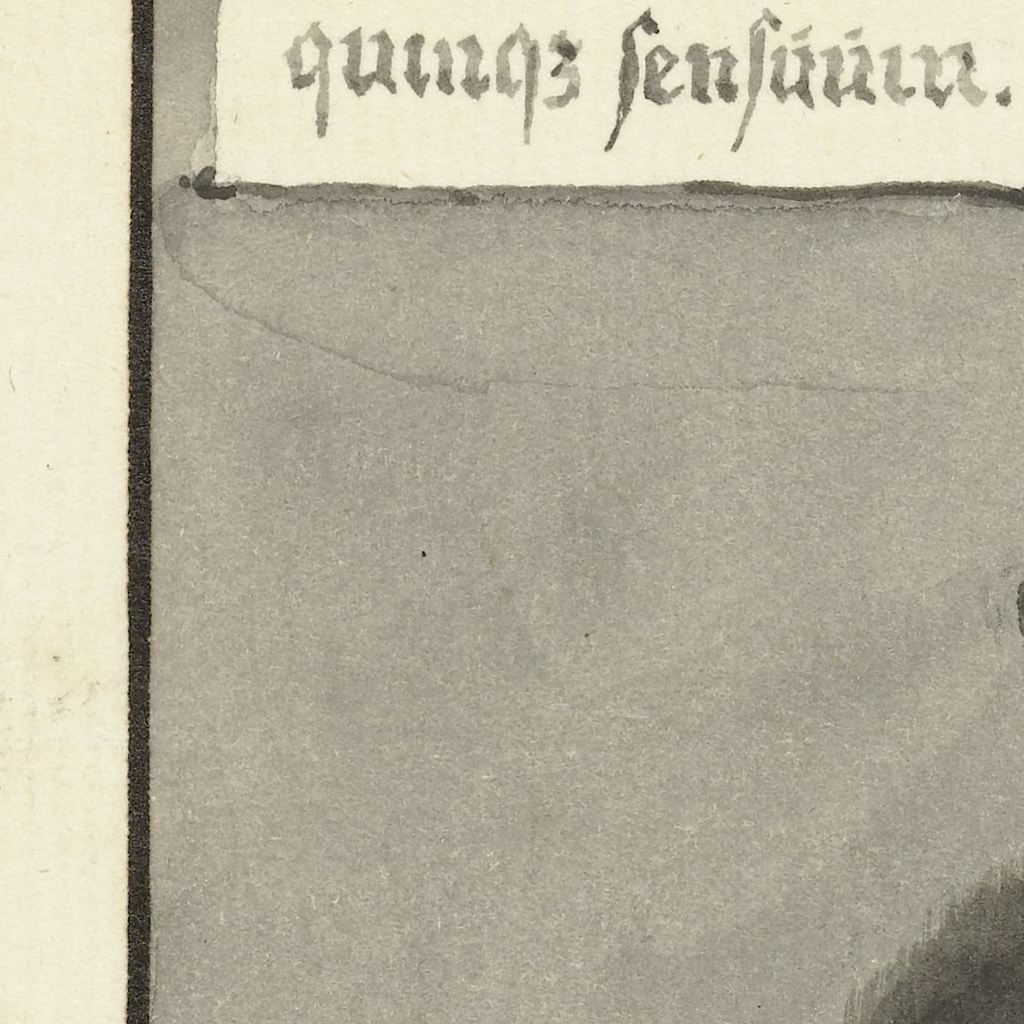 quinqꝫ ſenſüüm.